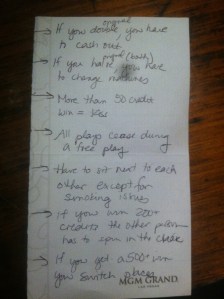 original
→ If you double, you have
to cash out.
→ If you halve you have
to change machines
→ More than 50 credit
win = kiss
→ All plays cease during
a free play
→ Have to sit next to each
other except for
smoking issues
→ If your win 200+
the other
has to spin in the
→ If you get a 500+ win
you switch places
MGM GRAND